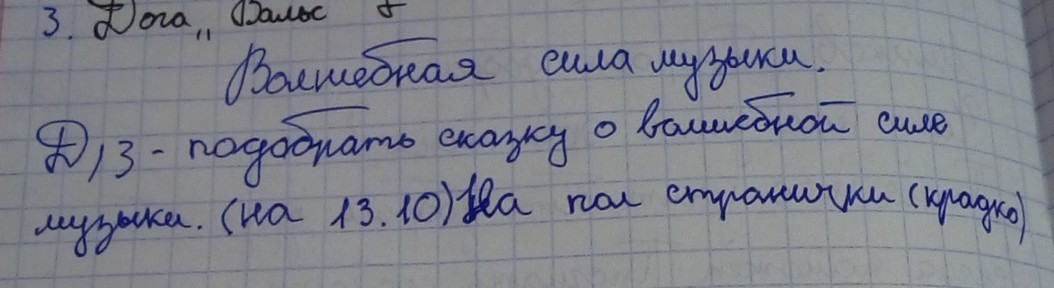 3. Дога „Вальс
Волшебная сила музыки.
Д/З - подобрать сказку о волшебной силе
музыки. (на 13.10) На пол странички (крадко)